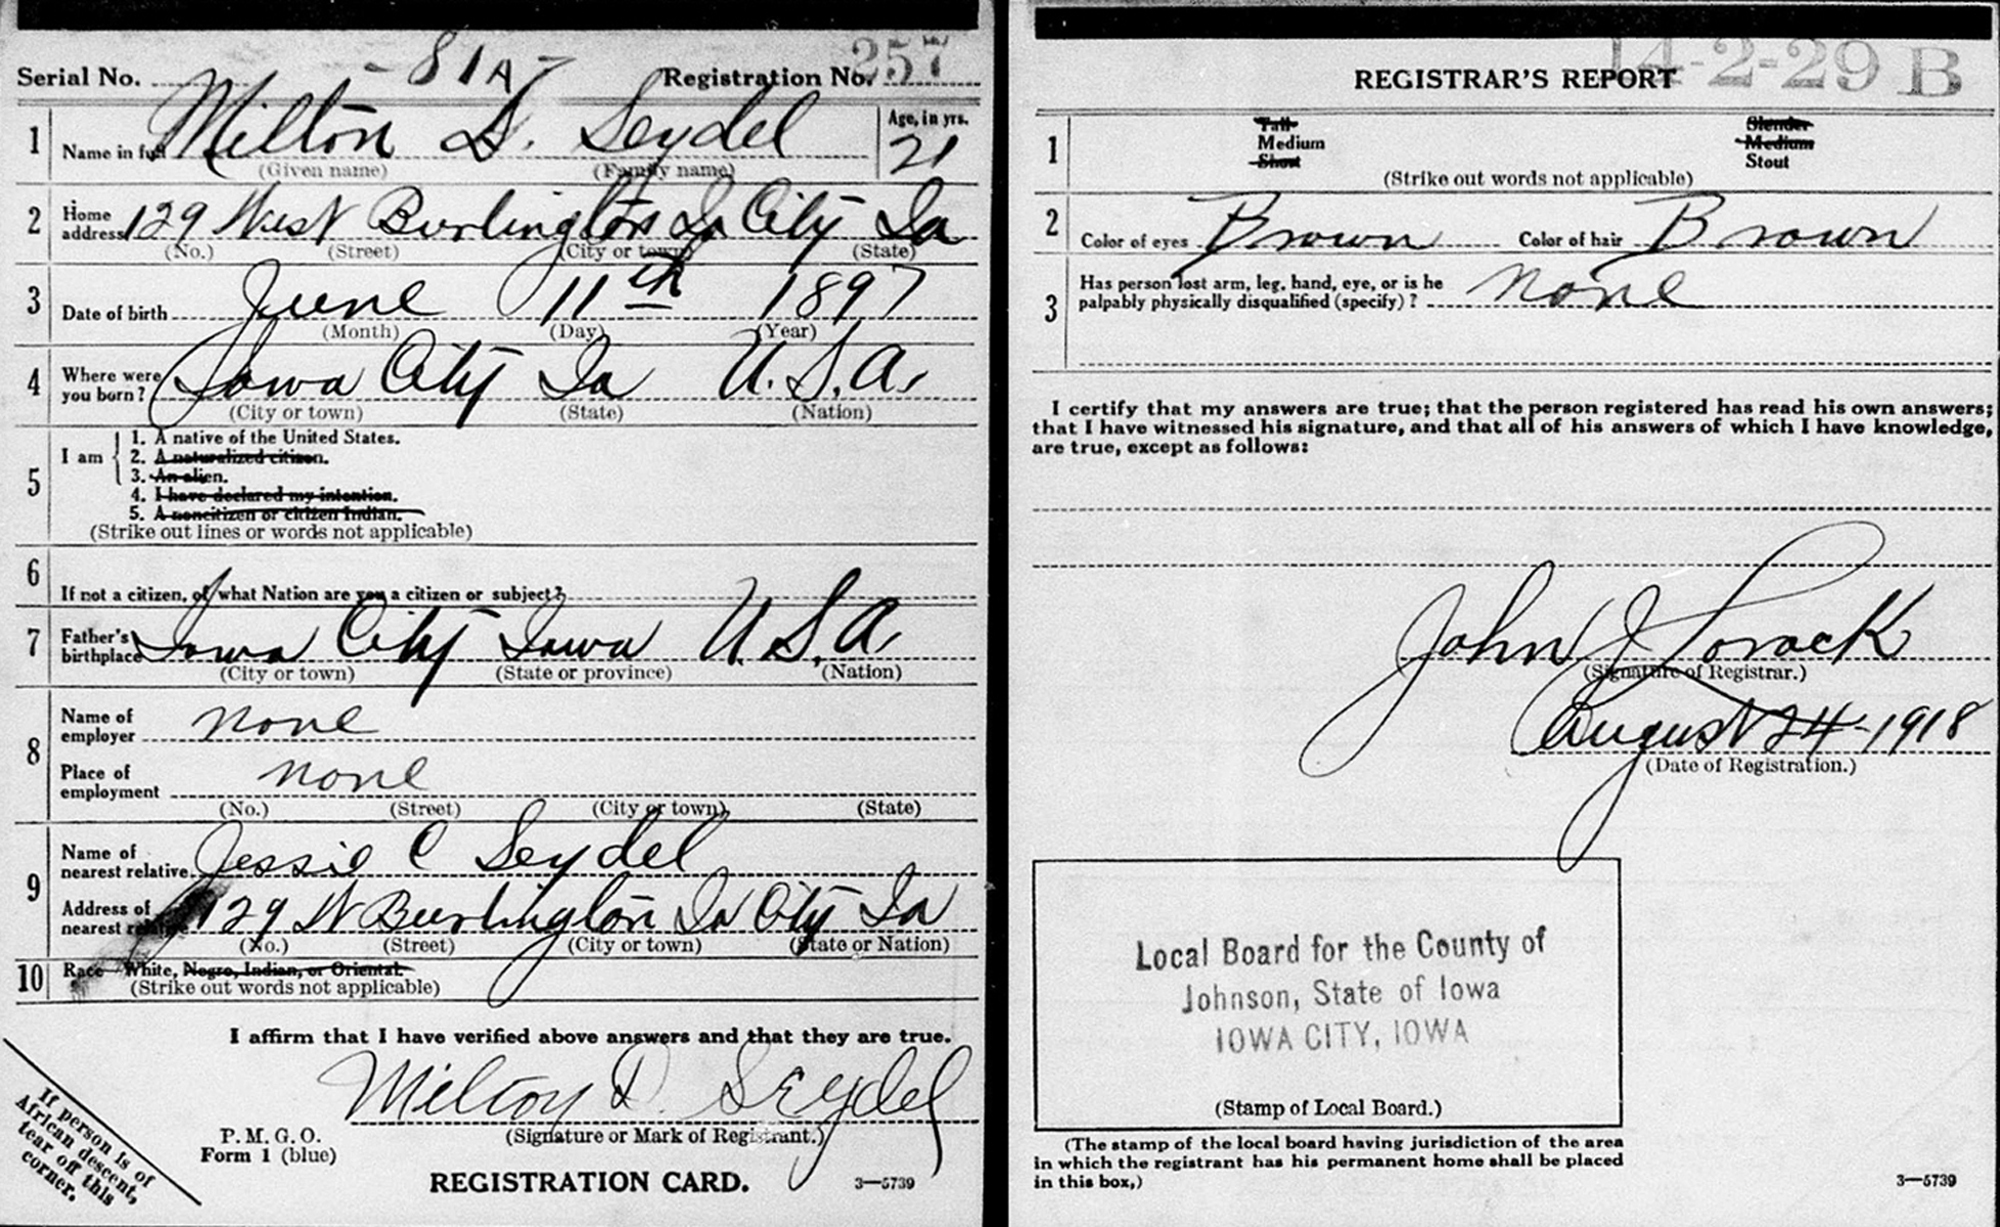 Serial No. - 81A - Registration No. 257
1 Name in full Milton D. Seydel Age, in yrs. 21
(Given name) (Family name)
2 Home address 129 West Burlington Ia City Ia
(No.) (Street) (City or town) (State)
3 Date of birth June 11th 1897
(Month) (Day) (Year)
4 Where were you born? Iowa City Ia U.S.A.
(City or town) (State) (Nation)
5 I am
1. A native of the United States.
2. A naturalized citizen.
3. An alien.
4. I have declared my intention.
5. A noncitizen or citizen Indian.
(Strike out lines or words not applicable)
6 If not a citizen, of what Nation are you a citizen or subject?
7 Father's birthplace Iowa City Iowa U.S.A
(City or town) (State or province) (Nation)
8 Name of employer none
Place of employment none
(No.) (Street) (City or town) (State)
9 Name of nearest relative Jessie C Seydel
Address of nearest relative 129 W Burlington Ia City Ia
(No.) (Street) (City or town) (State or Nation)
10 Race—White, Negro, Indian, or Oriental.
(Strike out words not applicable)
I affirm that I have verified above answers and that they are true.
Milton D. Seydel
(Signature or Mark of Registrant.)
P. M. G. O.
Form 1 (blue)
REGISTRATION CARD. 3—5739
If person is of
African descent,
tear off this
corner.
REGISTRAR'S REPORT 14-2-29 B
1 Tall Slender
Medium Medium
Short Stout
(Strike out words not applicable)
2 Color of eyes Brown Color of hair Brown
3 Has person lost arm, leg, hand, eye, or is he
palpably physically disqualified (specify)? none
I certify that my answers are true; that the person registered has read his own answers;
that I have witnessed his signature, and that all of his answers of which I have knowledge,
are true, except as follows:
John J
(Signature of Registrar.)
August 24-1918
(Date of Registration.)
Local Board for the County of
Johnson, State of Iowa
IOWA CITY, IOWA
(Stamp of Local Board.)
(The stamp of the local board having jurisdiction of the area
in which the registrant has his permanent home shall be placed
in this box.)
3—5739